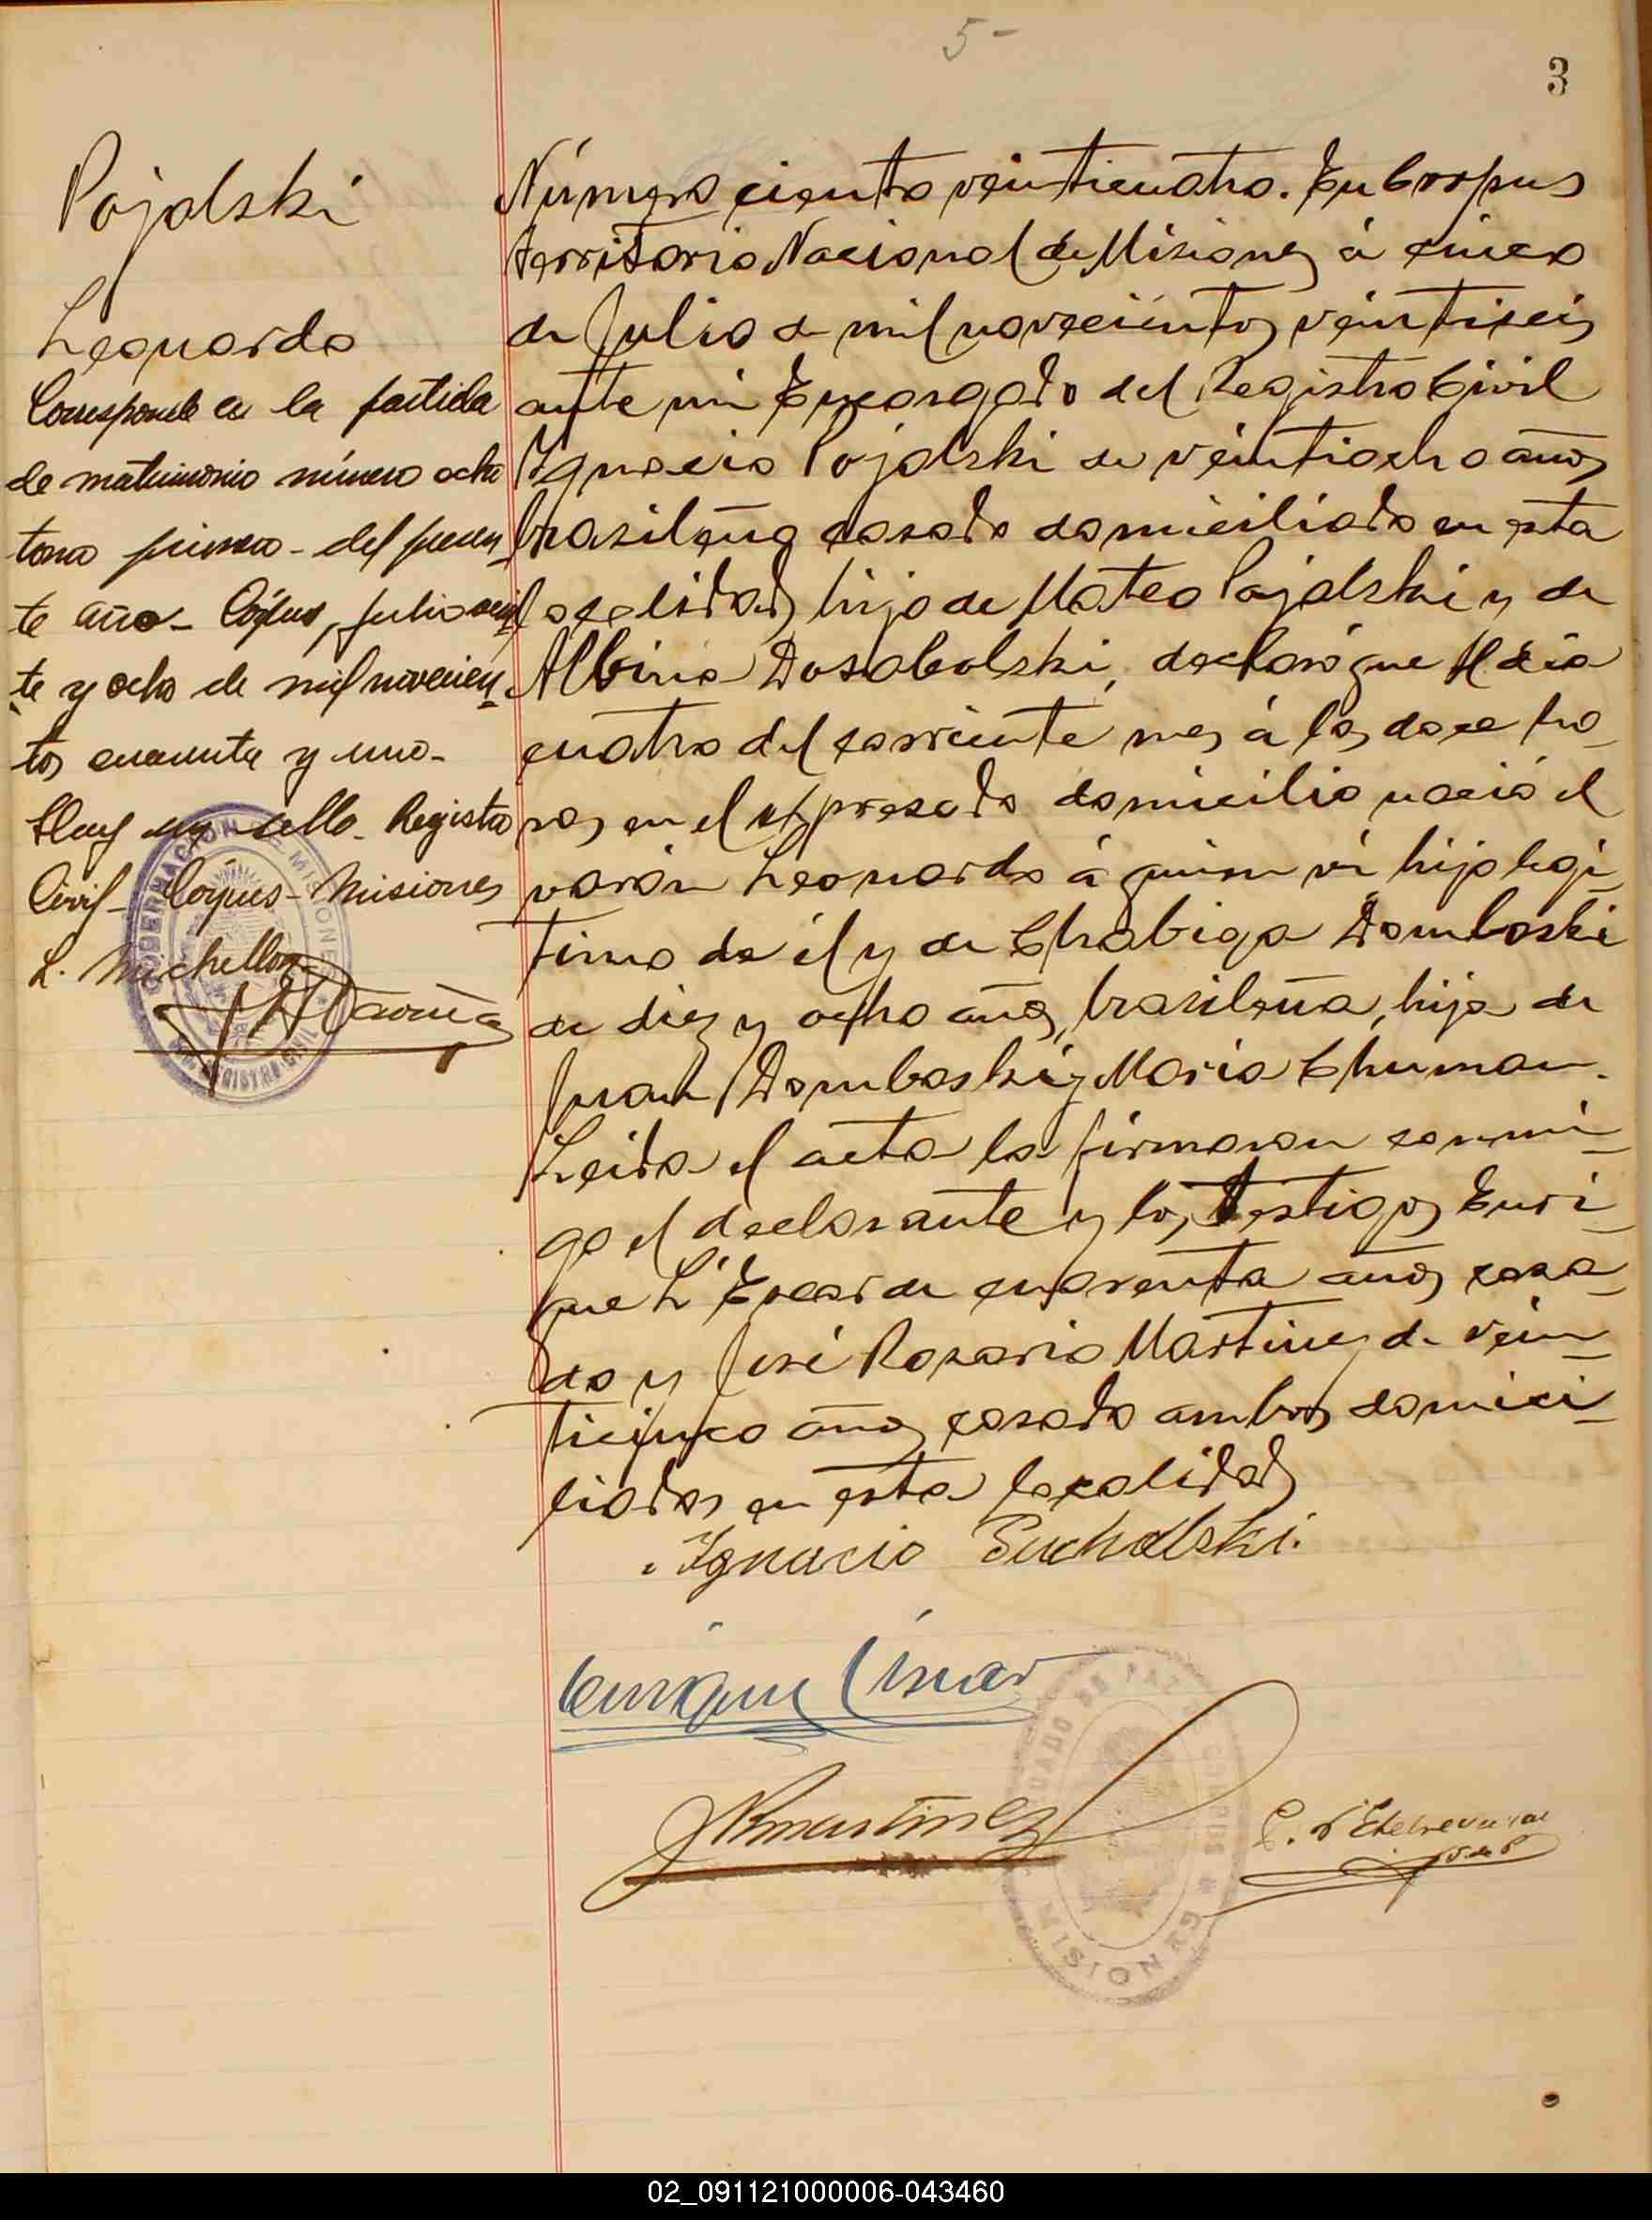 5-
3
Pojalski
Leonardo
Corresponde a la partida
de matrimonio número ocho
tomo primero - del presen-
te año - Córpus, julio vein-
te y ocho de mil novecien-
tos cuarenta y uno -
Hay un sello - Registro
Civil - Córpus - Misiones
L. Michellon
GOBERNACION DE MISIONES
REGISTRO CIVIL
Número ciento veinticuatro. En Corpus
territorio Nacional de Misiones á cinco
de Julio de mil novecientos veintiseis
ante mi Encargado del Registro Civil
Ygnacio Pojalski de veintiocho años
brasileño casado domiciliado en esta
localidad, hijo de Mateo Pojalski y de
Albina Dosabolski, declaró que el dia
cuatro del corriente mes á las doce ho-
ras en el expresado domicilio nació el
varón Leonardo á quien ví hijo legi-
timo de él y de Chabiga Domboski
de diez y ocho años, brasileña, hija de
Juan Domboski y Maria Chuman.
Leida el acta la firmaron conmi-
go el declarante y los testigos Enri-
que L' de cuarenta años casa-
do y José Rosario Martinez de vein-
ticinco años casado ambos domici-
liados en esta localidad
Ygnacio Puchalski.
Enrique
JRMartinez
JUZGADO DE PAZ
CORPUS
MISIONES
J. de P
02_091121000006-043460